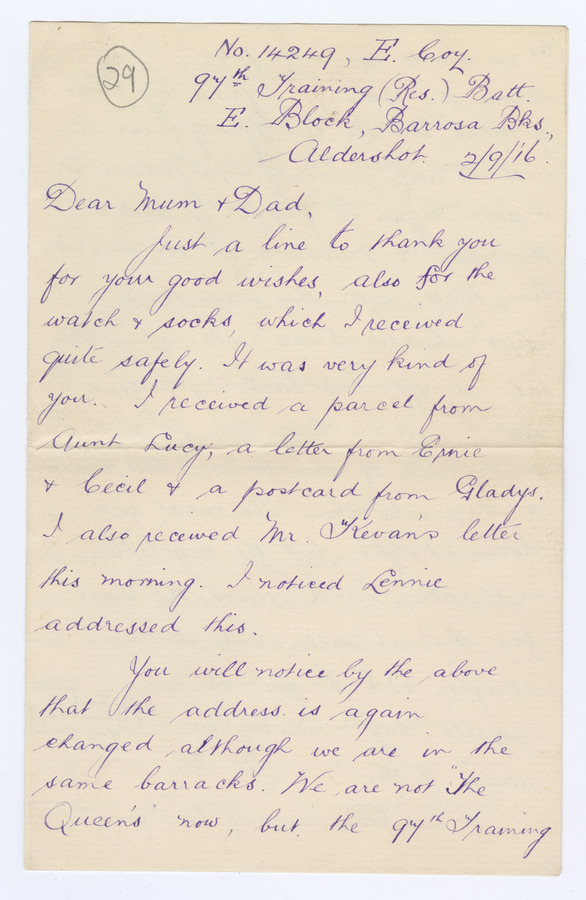 29
No. 14249, E. Coy.
97th Training (Res.) Batt.
E. Block, Barrosa Bks.,
Aldershot. 2/9/'16.
Dear Mum & Dad,
Just a line to thank you
for your good wishes, also for the
watch & socks, which I received
quite safely. It was very kind of
you. I received a parcel from
Aunt Lucy, a letter from Ernie
& Cecil & a postcard from Gladys.
I also received Mr. Kevan's letter
this morning. I noticed Lennie
addressed this.
You will notice by the above
that the address is again
changed although we are in the
same barracks. We are not "The
Queen's" now, but the 97th Training